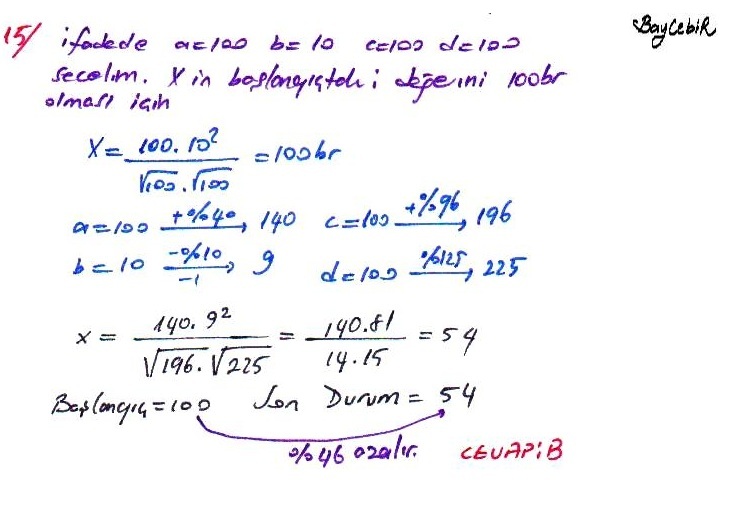 BayCebiR
15/ ifadede a=100 b=10 c=100 d=100
seçelim. X in başlangıçtaki değerini 100br
olması için
X = 100.10² / √100.√100 = 100br
a=100 +%40 140 c=100 +%96 196
b=10 -%10 -1 9 d=100 %125 225
x = 140.9² / √196.√225 = 140.81 / 14.15 = 54
Başlangıç=100 Son Durum = 54
%46 azalır. CEVAP:B